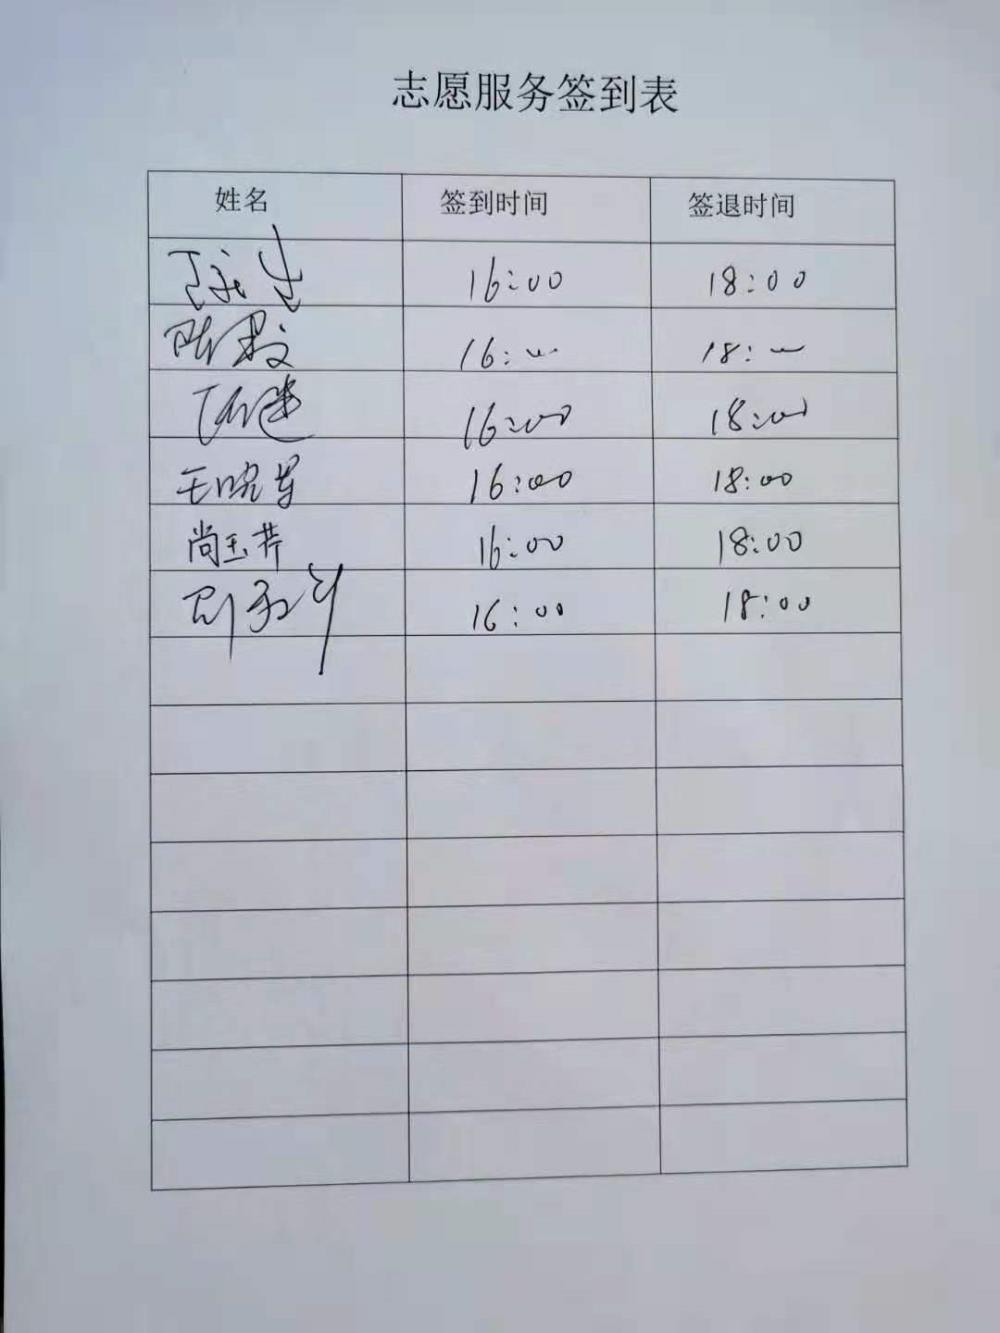 志愿服务签到表
姓名 签到时间 签退时间
16:00 18:00
16: 18:
16:00 18:00
王晓军 16:00 18:00
尚玉芹 16:00 18:00
16:00 18:00